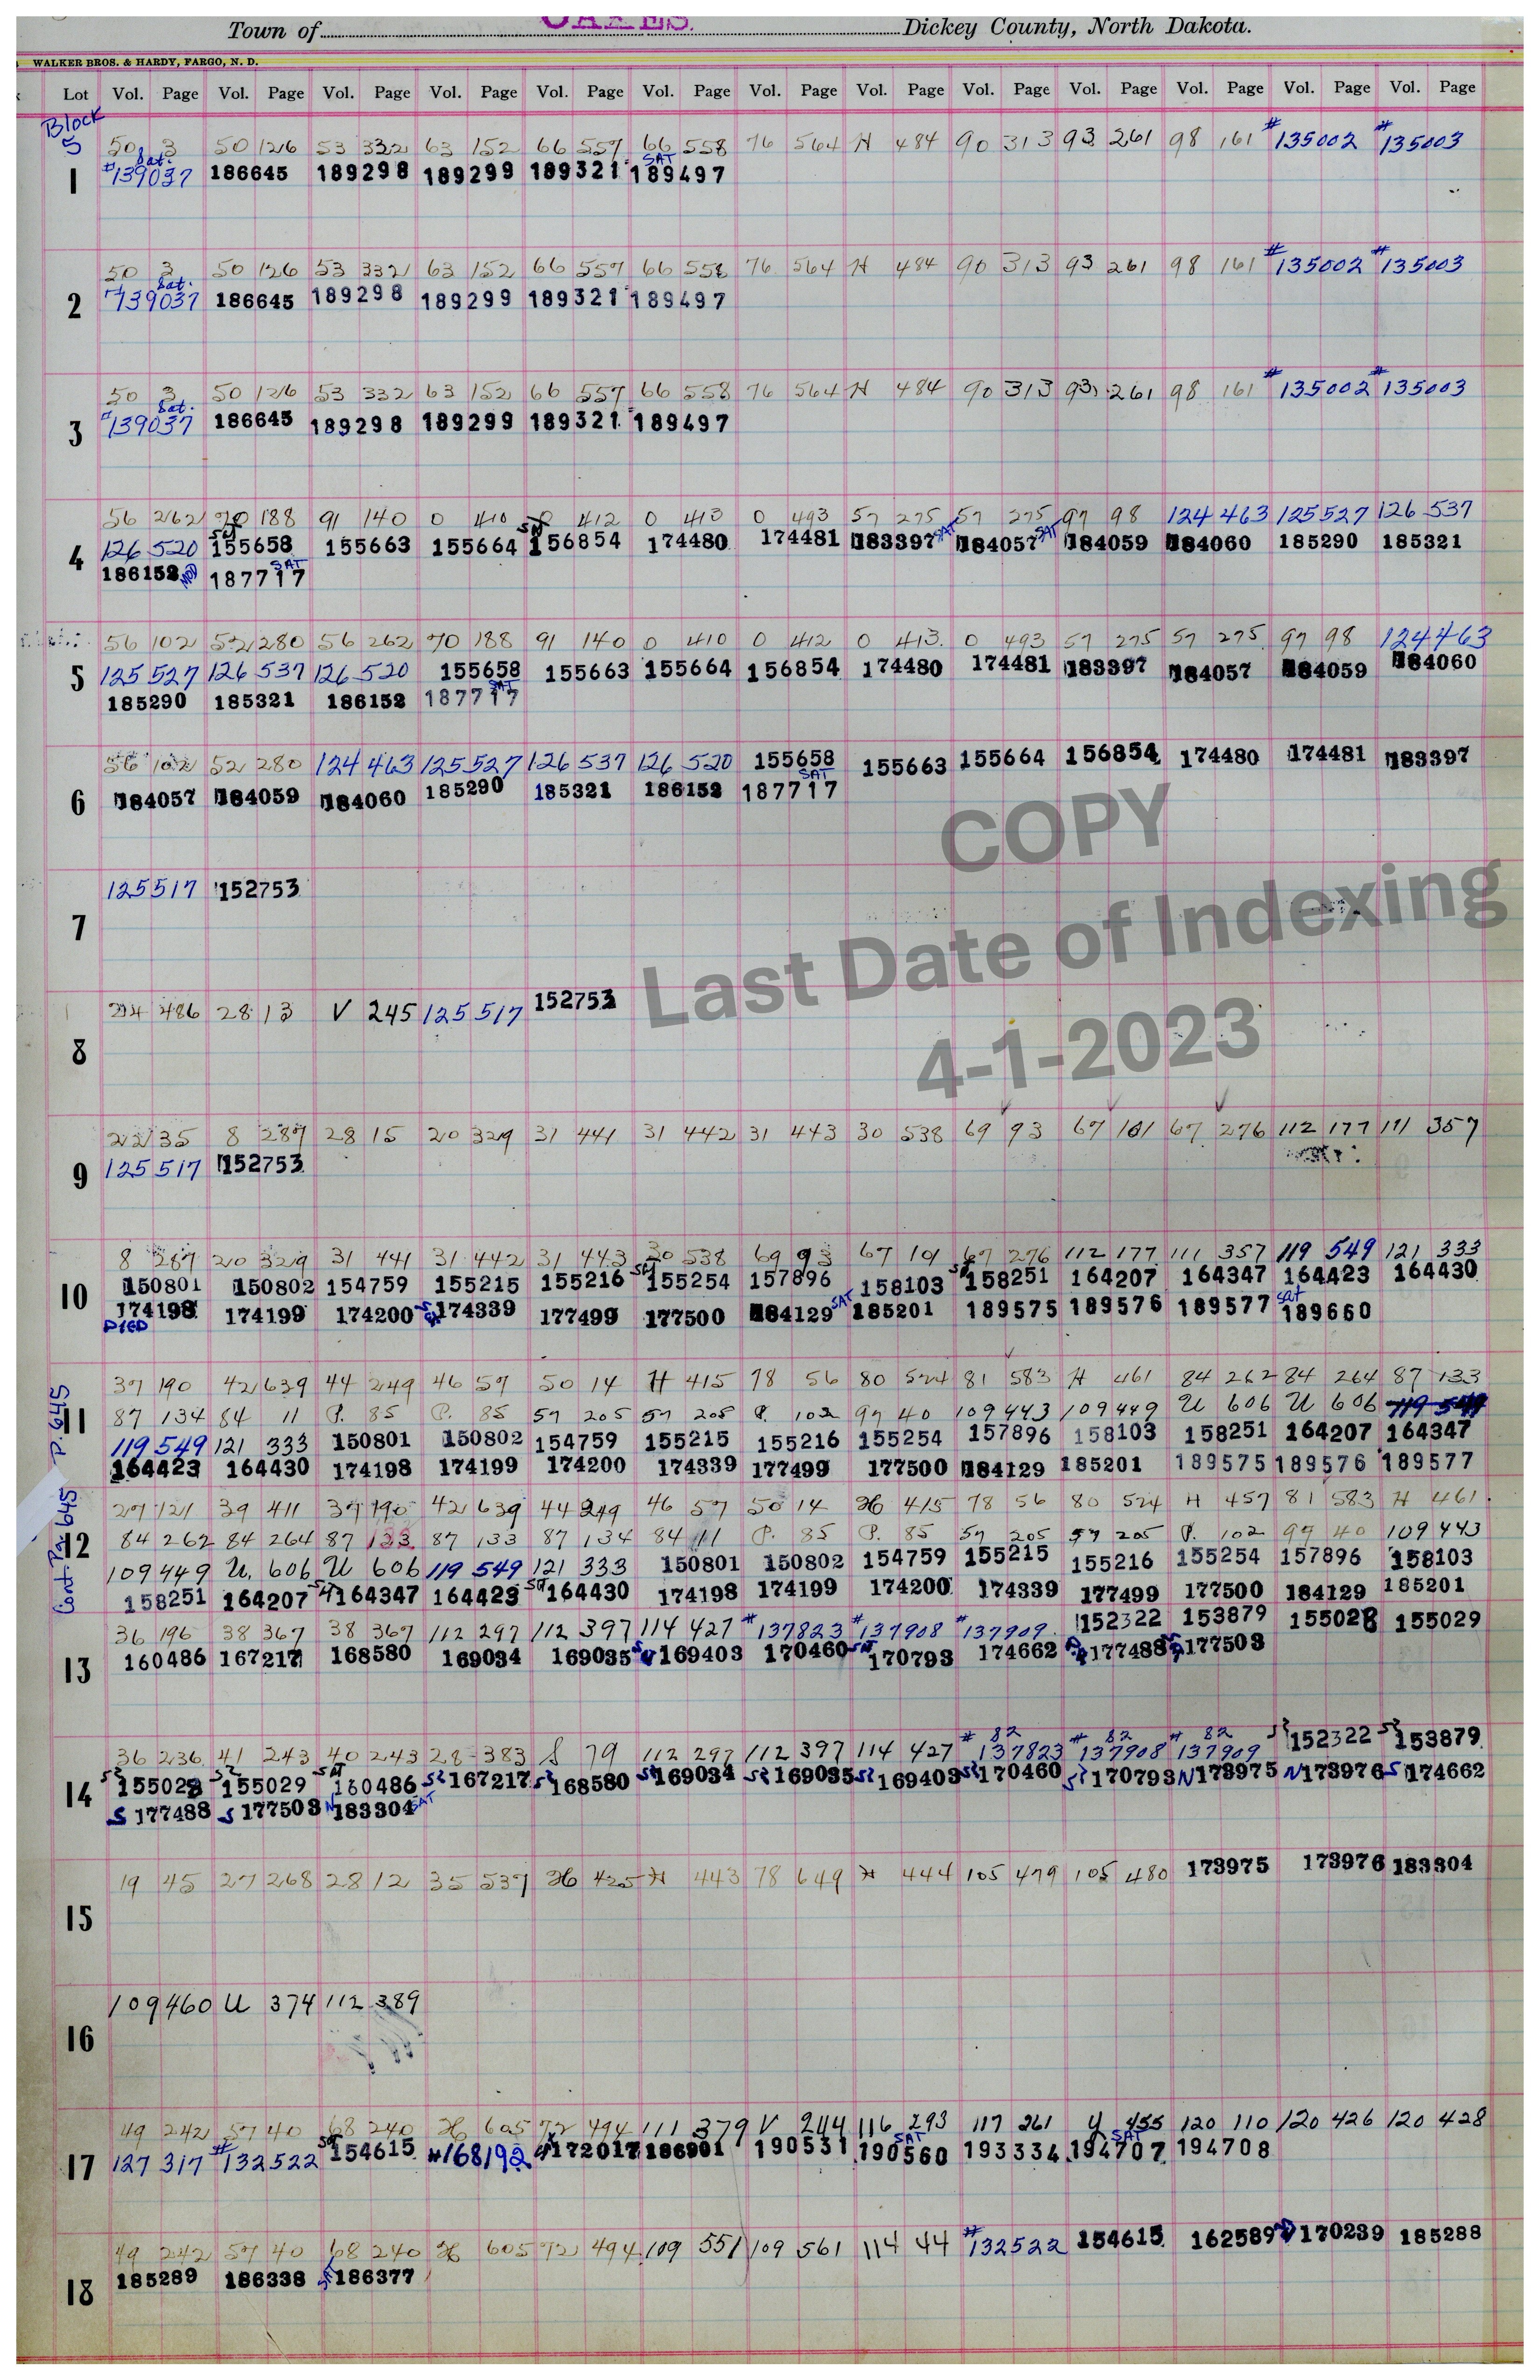 Town of OAKES. Dickey County, North Dakota.
WALKER BROS. & HARDY, FARGO, N. D.
Lot Vol. Page Vol. Page Vol. Page Vol. Page Vol. Page Vol. Page Vol. Page Vol. Page Vol. Page Vol. Page Vol. Page Vol. Page Vol. Page
Block
5 50 3 50 126 53 332 63 152 66 557 66 558 76 564 H 484 90 313 93 261 98 161 #135002 #135003
Sat. SAT
1 #139037 186645 189298 189299 189321 189497
50 3 50 126 53 332 63 152 66 557 66 558 76 564 H 484 90 313 93 261 98 161 #135002 #135003
Sat.
2 #139037 186645 189298 189299 189321 189497
50 3 50 126 53 332 63 152 66 557 66 558 76 564 H 484 90 313 93 261 98 161 #135002 #135003
Sat.
3 #139037 186645 189298 189299 189321 189497
56 262 70 188 91 140 0 410 0 412 0 413 0 493 57 275 57 275 97 98 124 463 125 527 126 537
4 126 520 155658 155663 155664 156854 174480 174481 183397 SAT 184057 SAT 184059 184060 185290 185321
186152 MOD 187717 SAT
56 102 52 280 56 262 70 188 91 140 0 410 0 412 0 413 0 493 57 275 57 275 97 98 124 463
5 125 527 126 537 126 520 155658 155663 155664 156854 174480 174481 183397 184057 184059 184060
185290 185321 186152 187717 SAT
56 102 52 280 124 463 125 527 126 537 126 520 155658 155663 155664 156854 174480 174481 183397
6 184057 184059 184060 185290 185321 186152 187717 SAT
125 517 152753
7
24 486 28 13 V 245 125 517 152753
8
22 35 8 287 28 15 20 329 31 441 31 442 31 443 30 538 69 93 67 101 67 276 112 177 111 357
9 125 517 152753
8 287 20 329 31 441 31 442 31 443 30 538 69 93 67 101 67 276 112 177 111 357 119 549 121 333
10 150801 150802 154759 155215 155216 155254 157896 158103 158251 164207 164347 164423 164430
174198 174199 174200 174339 177499 177500 184129 SAT 185201 189575 189576 189577 sat 189660
37 190 42 639 44 249 46 57 50 14 H 415 78 56 80 524 81 583 H 461 84 262 84 264 87 133
P. 645
11 87 134 84 11 P. 85 P. 85 57 205 57 205 P. 102 97 40 109 443 109 449 U 606 U 606 119 549
119 549 121 333 150801 150802 154759 155215 155216 155254 157896 158103 158251 164207 164347
164423 164430 174198 174199 174200 174339 177499 177500 184129 185201 189575 189576 189577
27 121 39 411 37 190 42 639 44 249 46 57 50 14 H 415 78 56 80 524 H 457 81 583 H 461
Cont. Pg. 645
12 84 262 84 264 87 133 87 133 87 134 84 11 P. 85 P. 85 57 205 57 205 P. 102 97 40 109 443
109 449 U. 606 U 606 119 549 121 333 150801 150802 154759 155215 155216 155254 157896 158103
158251 164207 164347 164423 164430 174198 174199 174200 174339 177499 177500 184129 185201
36 196 38 367 38 367 112 297 112 397 114 427 #137823 #137908 #137909 152322 153879 155028 155029
13 160486 167217 168580 169034 169035 169403 170460 170793 174662 177488 177503
36 236 41 243 40 243 28 383 S 79 112 297 112 397 114 427 #82 137823 #82 137908 #82 137909 152322 153879
14 155028 155029 160486 167217 168580 169034 169035 169403 170460 170793 N 173975 N 173976 S 174662
S 177488 S 177503 N 183304 SAT
19 45 27 268 28 12 35 537 H 425 H 443 78 649 H 444 105 479 105 480 173975 173976 183304
15
109 460 U 374 112 389
16
49 242 57 40 68 240 H 605 72 494 111 379 V 244 116 293 117 261 Y 455 120 110 120 426 120 428
17 127 317 #132522 154615 #168192 172017 186901 190531 SAT 190560 193334 SAT 194707 194708
49 242 57 40 68 240 H 605 72 494 109 551 109 561 114 44 #132522 154615 162589 170239 185288
18 185289 186338 SAT 186377
COPY
Last Date of Indexing
4-1-2023